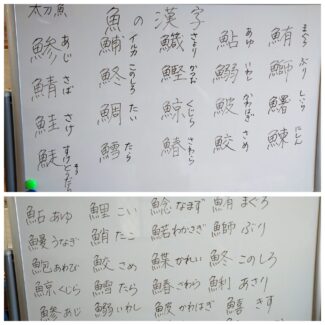 太刀魚
魚の漢字
鯵 あじ 鯆 イルカ 鱵 さより 鮎 あゆ 鮪 まぐろ
鯖 さば 鮗 このしろ 鰹 かつお 鰯 いわし 鰤 ぶり
鮭 さけ 鯛 たい 鯨 くじら 鮍 鱰 しいら
すけとうだら 鱈 たら 鰆 さわら 鮫 さめ 鰊 にしん
鮎 あゆ 鯉 こい 鯰 なまず 鮪 まぐろ
鰻 うなぎ 鮹 たこ 鰙 わかさぎ 鰤 ぶり
鮑 あわび 鮫 さめ 鰈 かれい 鮗 このしろ
鯨 くじら 鱈 たら 鰆 さわら 鯏 あさり
鯵 あじ 鰯 いわし 鮍 かわはぎ 鱚 きす